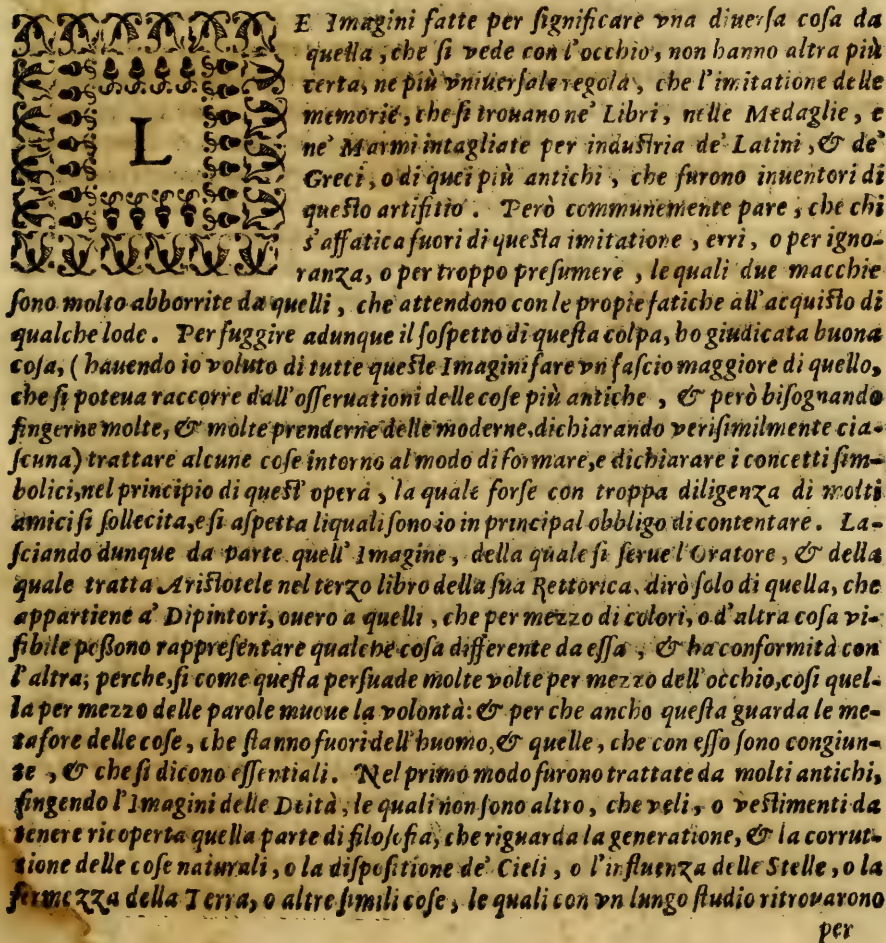 LE Imagini fatte per ſignificare vna diuerſa coſa da
quella, che ſi vede con l'occhio, non hanno altra più
certa, ne più vniuerſale regola, che l'imitatione delle
memorie, che ſi trouano ne' Libri, nelle Medaglie, e
ne' Marmi intagliate per induſtria de' Latini, & de'
Greci, o di quei più antichi, che furono inuentori di
queſto artifitio. Però communemente pare, che chi
s'affatica fuori di queſta imitatione, erri, o per igno-
ranza, o per troppo preſumere, le quali due macchie
ſono molto abborrite da quelli, che attendono con le propie fatiche all'acquiſto di
qualche lode. Per fuggire adunque il ſoſpetto di queſta colpa, ho giudicata buona
coſa, (hauendo io voluto di tutte queſte Imagini fare vn faſcio maggiore di quello,
che ſi poteua raccorre dall'oſſeruationi delle coſe più antiche, & però biſognando
fingerne molte, & molte prenderne delle moderne, dichiarando veriſimilmente cia-
ſcuna) trattare alcune coſe intorno al modo di formare, e dichiarare i concetti ſim-
bolici, nel principio di queſt' opera, la quale forſe con troppa diligenza di molti
amici ſi ſollecita, e ſi aſpetta li quali ſono io in principal obbligo di contentare. La-
ſciando dunque da parte quell' Imagine, della quale ſi ſerue l'Oratore, & della
quale tratta Ariſtotele nel terzo libro della ſua Rettorica, dirò ſolo di quella, che
appartiene a' Dipintori, ouero a quelli, che per mezzo di colori, o d'altra coſa vi-
ſibile poſſono rappreſentare qualche coſa differente da eſſa, & ha conformità con
l'altra; perche, ſi come queſta perſuade molte volte per mezzo dell'occhio, coſi quel-
la per mezzo delle parole muoue la volontà: & per che ancho queſta guarda le me-
tafore delle coſe, che ſtanno fuori dell'huomo, & quelle, che con eſſo ſono congiun-
te, & che ſi dicono eſſentiali. Nel primo modo furono trattate da molti antichi,
fingendo l'Imagini delle Deità, le quali non ſono altro, che veli, o veſtimenti da
tenere ricoperta quella parte di filoſofia, che riguarda la generatione, & la corrut-
tione delle coſe naturali, o la diſpoſitione de' Cieli, o l'influenza delle Stelle, o la
fermezza della Terra, o altre ſimili coſe, le quali con vn lungo ſtudio ritrouarono
per